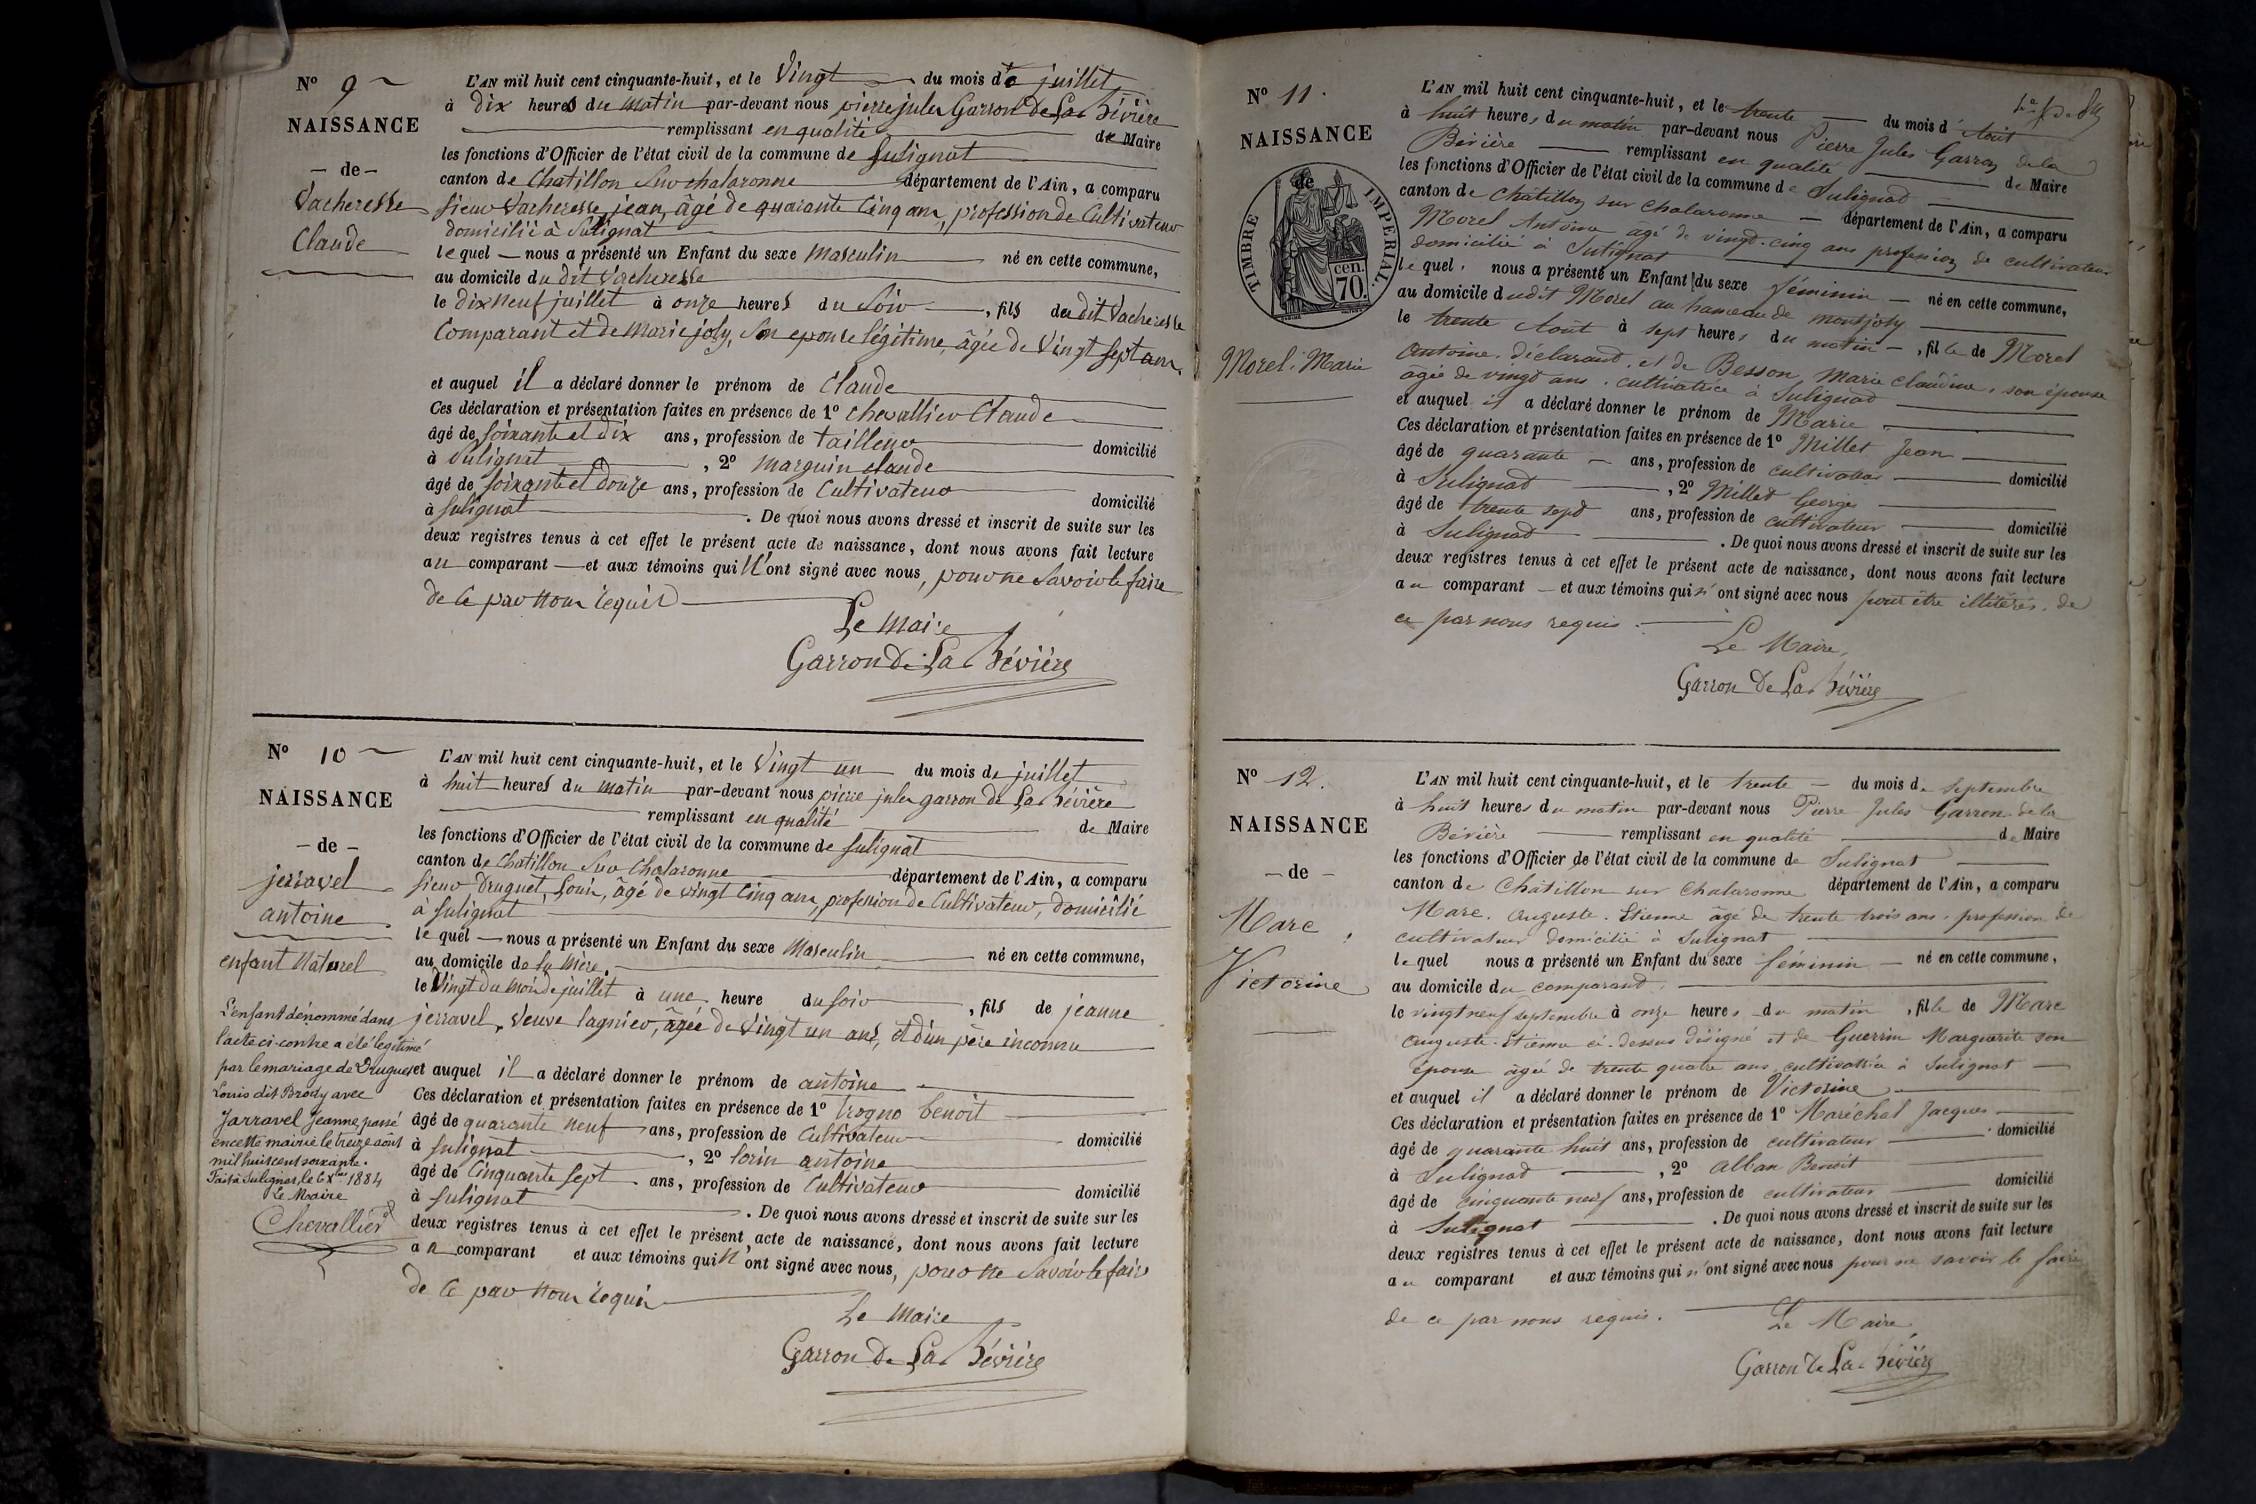 N° 9
NAISSANCE
— de —
Vacheresse
Claude
L'AN mil huit cent cinquante-huit, et le Vingt du mois de juillet
à dix heures du matin par-devant nous pierre jules Garron De La Bévière
remplissant en qualité de Maire
les fonctions d'Officier de l'état civil de la commune de Sulignat
canton de Chatillon Sur chalaronne département de l'Ain, a comparu
sieur Vacheresse jean, âgé de quarante Cinq ans, profession de Cultivateur
domicilié à Sulignat
lequel nous a présenté un Enfant du sexe masculin né en cette commune,
au domicile du dit Vacheresse
le dix neuf juillet à onze heures du Soir, fils du dit Vacheresse
Comparant et de Marie joly, Son epouse légitime, âgée de Vingt Sept ans.
et auquel il a déclaré donner le prénom de Claude
Ces déclaration et présentation faites en présence de 1° chevallier Claude
âgé de soixante et dix ans, profession de tailleur domicilié
à Sulignat, 2° marguin claude
âgé de soixante et douze ans, profession de Cultivateur domicilié
à Sulignat. De quoi nous avons dressé et inscrit de suite sur les
deux registres tenus à cet effet le présent acte de naissance, dont nous avons fait lecture
au comparant et aux témoins qui N'ont signé avec nous, pour ne Savoir le faire
de ce par nous requis
Le Maire
Garron De La Bévière
N° 10
NAISSANCE
— de —
jerravel
antoine
enfant Naturel
L'enfant dénommé dans
l'acte ci-contre a été légitimé
par le mariage de Druguet
Louis dit Brody avec
Jarravel Jeanne, passé
en cette mairie le treize août
mil huit cent soixante.
Fait à Sulignat, le 6 Xbre 1884
Le Maire
Chevallier
L'AN mil huit cent cinquante-huit, et le Vingt un du mois de juillet
à huit heures du matin par-devant nous pierre jules garron de La Bévière
remplissant en qualité de Maire
les fonctions d'Officier de l'état civil de la commune de Sulignat
canton de Chatillon Sur Chalaronne département de l'Ain, a comparu
sieur Druguet, Louis, âgé de vingt Cinq ans, profession de Cultivateur, domicilié
à Sulignat
lequel nous a présenté un Enfant du sexe Masculin né en cette commune,
au domicile de la Mère.
le Vingt du mois de juillet à une heure du soir, fils de jeanne
jerravel, Veuve lagnier, âgée de Vingt un ans, et d'un père inconnu
et auquel il a déclaré donner le prénom de antoine
Ces déclaration et présentation faites en présence de 1° benoit
âgé de quarante neuf ans, profession de Cultivateur domicilié
à Sulignat, 2° lorin antoine
âgé de Cinquante Sept ans, profession de Cultivateur domicilié
à Sulignat. De quoi nous avons dressé et inscrit de suite sur les
deux registres tenus à cet effet le présent acte de naissance, dont nous avons fait lecture
au comparant et aux témoins qui N'ont signé avec nous, pour ne Savoir le faire
de Ce par Nous requis
Le Maire
Garron De La Bévière
N° 11.
NAISSANCE
de
TIMBRE IMPERIAL
70. cen.
Morel. Marie
L'AN mil huit cent cinquante-huit, et le trente du mois d'Août
à huit heures du matin par-devant nous Pierre Jules Garron de la
Bévière remplissant en qualité de Maire
les fonctions d'Officier de l'état civil de la commune de Sulignat
canton de Châtillon sur Chalaronne département de l'Ain, a comparu
Morel Antoine agé de vingt-cinq ans profession de cultivateur
domicilié à Sulignat
lequel. nous a présenté un Enfant du sexe féminin né en cette commune,
au domicile dudit Morel au hameau de montjoly
le trente Août à sept heures du matin, fille de Morel
Antoine. déclarant, et de Besson Marie Claudine, son épouse
âgée de vingt ans, cultivatrice à Sulignat
et auquel il a déclaré donner le prénom de Marie
Ces déclaration et présentation faites en présence de 1° Millet Jean
âgé de quarante ans, profession de cultivateur domicilié
à Sulignat, 2° Millet George
âgé de trente sept ans, profession de cultivateur domicilié
à Sulignat. De quoi nous avons dressé et inscrit de suite sur les
deux registres tenus à cet effet le présent acte de naissance, dont nous avons fait lecture
au comparant et aux témoins qui n'ont signé avec nous pour être illitérés, de
ce par nous requis.
Le Maire,
Garron De La Bévière
N° 12.
NAISSANCE
— de —
Marc,
Victorine
L'AN mil huit cent cinquante-huit, et le trente du mois de septembre
à huit heures du matin par-devant nous Pierre Jules Garron de la
Bévière remplissant en qualité de Maire
les fonctions d'Officier de l'état civil de la commune de Sulignat
canton de Châtillon sur Chalaronne département de l'Ain, a comparu
Marc. Auguste. Etienne âgé de trente trois ans. profession de
cultivateur domicilié à Sulignat
lequel nous a présenté un Enfant du sexe féminin né en cette commune,
au domicile du comparant.
le vingt neuf septembre à onze heures du matin, fille de Marc
Auguste. Etienne ci-dessus désigné et de Guerrin Marguerite son
épouse agée de trente quatre ans cultivatrice à Sulignat
et auquel il a déclaré donner le prénom de Victorine
Ces déclaration et présentation faites en présence de 1° Maréchal Jacques
âgé de quarante huit ans, profession de cultivateur domicilié
à Sulignat, 2° Alban Benoit
âgé de cinquante neuf ans, profession de cultivateur domicilié
à Sulignat. De quoi nous avons dressé et inscrit de suite sur les
deux registres tenus à cet effet le présent acte de naissance, dont nous avons fait lecture
au comparant et aux témoins qui n'ont signé avec nous pour ne savoir le faire
de ce par nous requis.
Le Maire
Garron De La Bévière